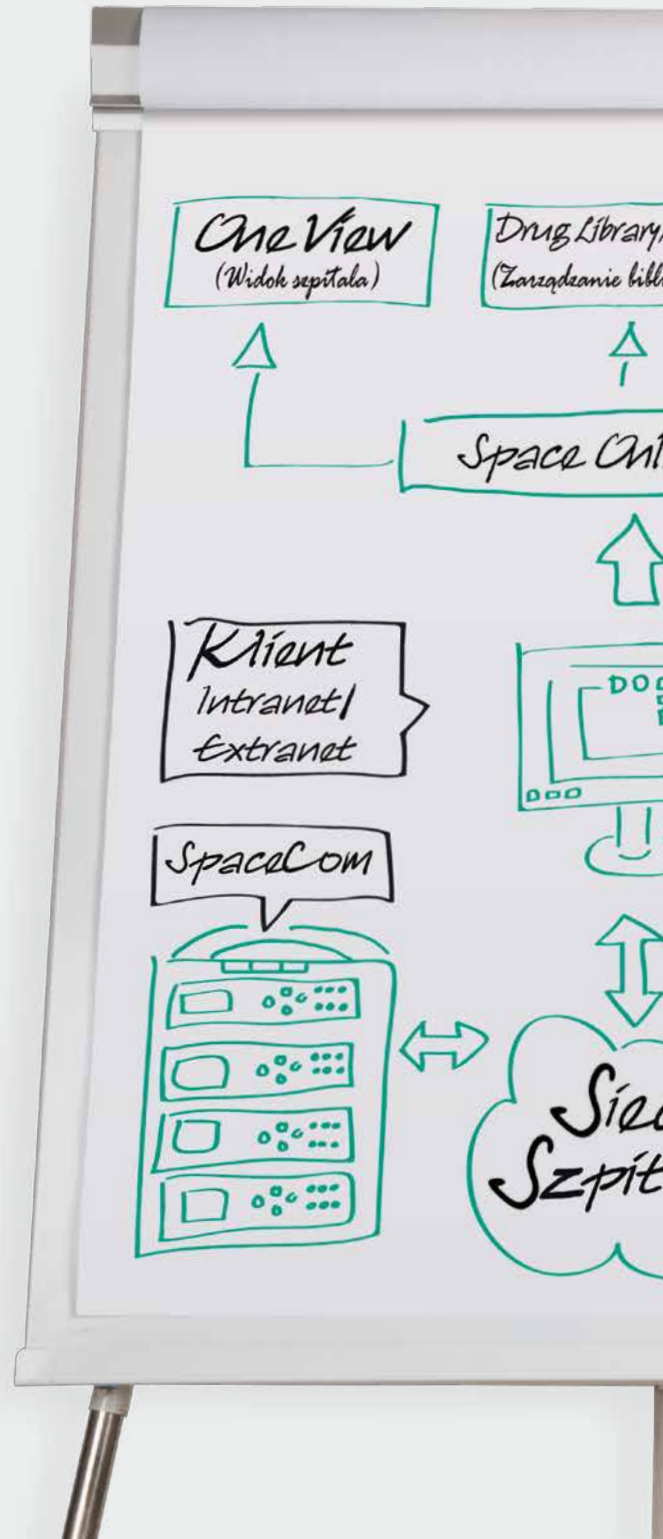 OneView
(Widok szpitala)
Drug Library
(Zarządzanie
Space
Klient
Intranet/
Extranet
SpaceCom